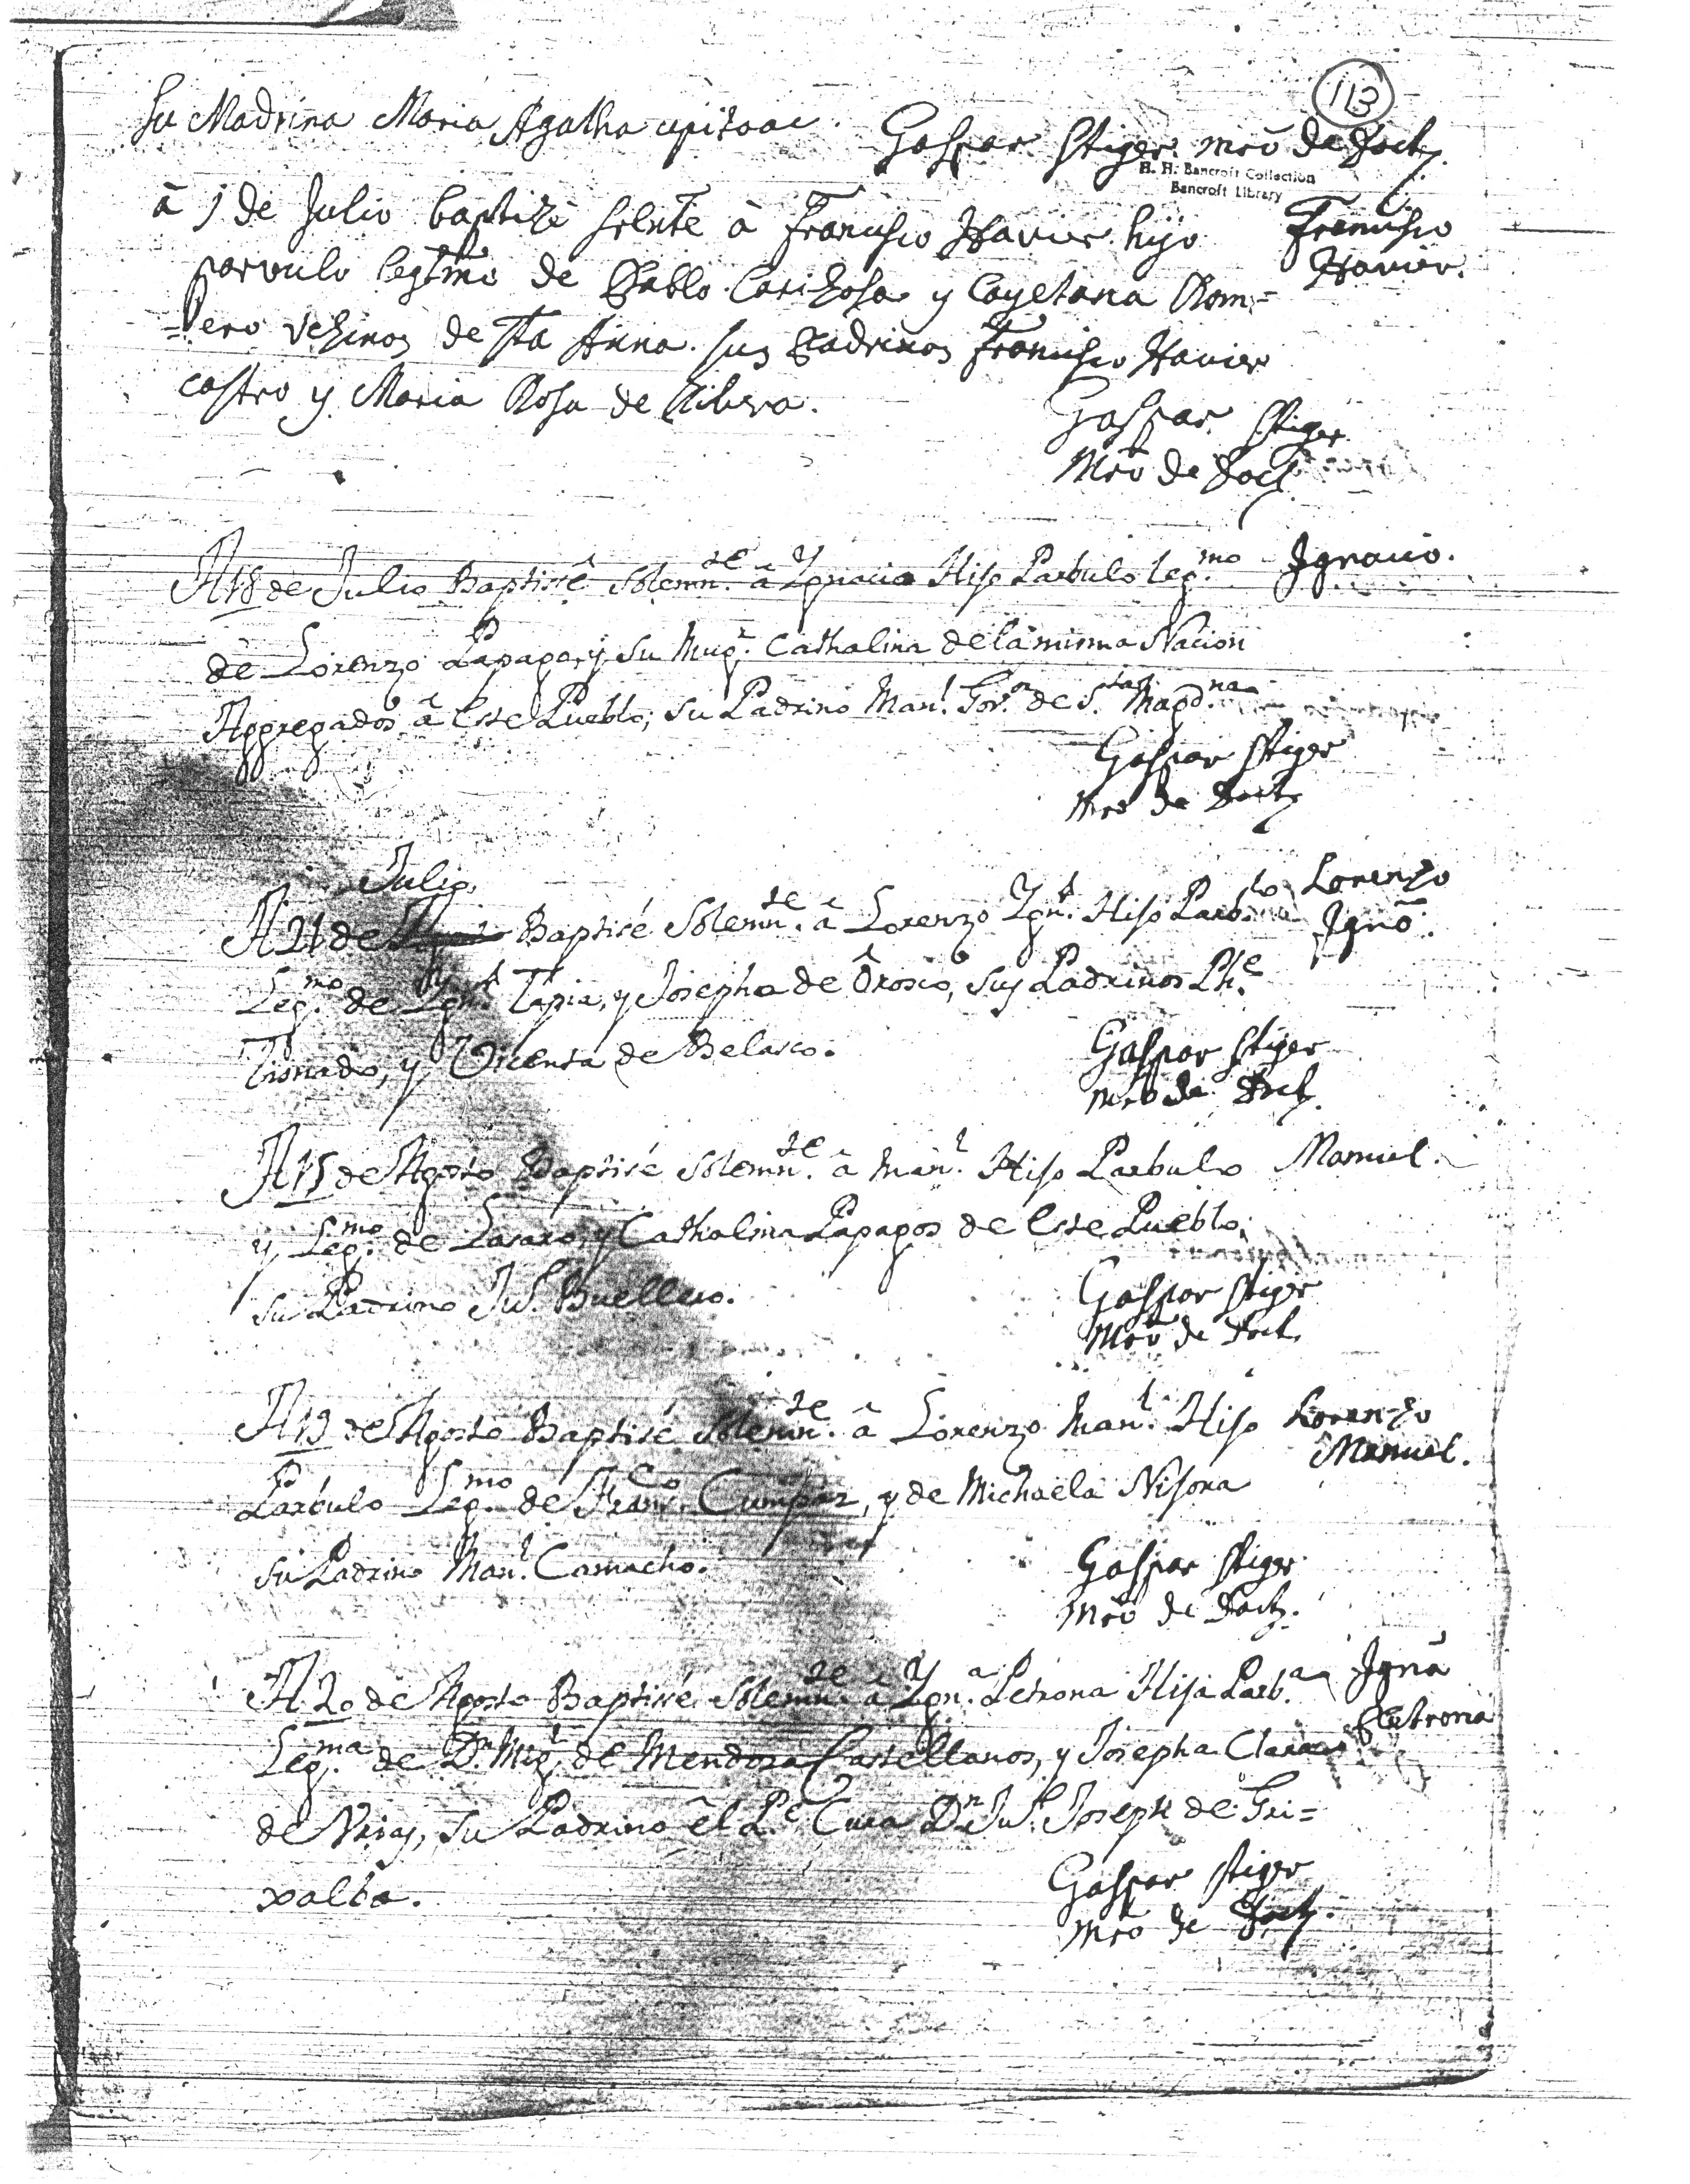 113
Su Madrina Maria Agatha upitoac. Gaspar Stiger mrõ de Doctª
H. H. Bancroft Collection
Bancroft Library
à 1 de Julio baptizè solente à Francisco Xavier hijo
Francisco
Xavier.
parvulo legtmo de Pablo Carizosa y Cayetana Rom=
=ero vezinos de Sta Anna. sus Padrinos Francisco Xavier
castro y Maria Rosa de Ribera.
Gaspar Stiger
Mrõ de Doct.
A 18 de Julio Baptisé Solemn.te â Ygnacio Hijo Parbulo leg.mo
Ignacio.
de Lorenzo Papago, y su Mug.r Cathalina de la misma Nacion
Aggregados â Este Pueblo; su Padrino Man.l Gov.or de S.ta Magd.na
Gaspar Stiger
Mrõ de Doct.
Julio
A 21 de Baptisé Solemn.te â Lorenzo Ygn.o Hijo Parb.lo
Lorenzo
Ignõ.
Leg.mo de Ygn.o Tapia, y Josepha de Orosco, sus Padrinos Ph.e
Tisnado, y Vicenta de Belasco.
Gaspar Stiger
mrõ de Doct.
A 15 de Agosto Baptisé Solemn.te â Man.l Hijo Parbulo
Manuel.
y Leg.mo de Lasaro, y Cathalina Papagos de Este Pueblo,
su Padrino Ju.º Buellero.
Gaspar Stiger
Mrõ de Doct.
A 19 de Agosto Baptisé Solemn.te â Lorenzo Man.l Hijo
Lorenzo
Manuel.
Parbulo Leg.mo de Fran.co Cumpar, y de Michaela Nijora
su Padrino Man.l Camacho.
Gaspar Stiger
Mrõ de Doct.
A 20 de Agosto Baptisé Solemn.te â Ygn.a Petrona Hija Parb.a
Ignã
Petrona
Leg.ma de D.n Mig.l de Mendosa Castellanos, y Josepha Clara
de Vrias, su Padrino êl P.e Cura D.n Ju.º Joseph de Gri=
xalba.
Gaspar Stiger
Mrõ de Doct.